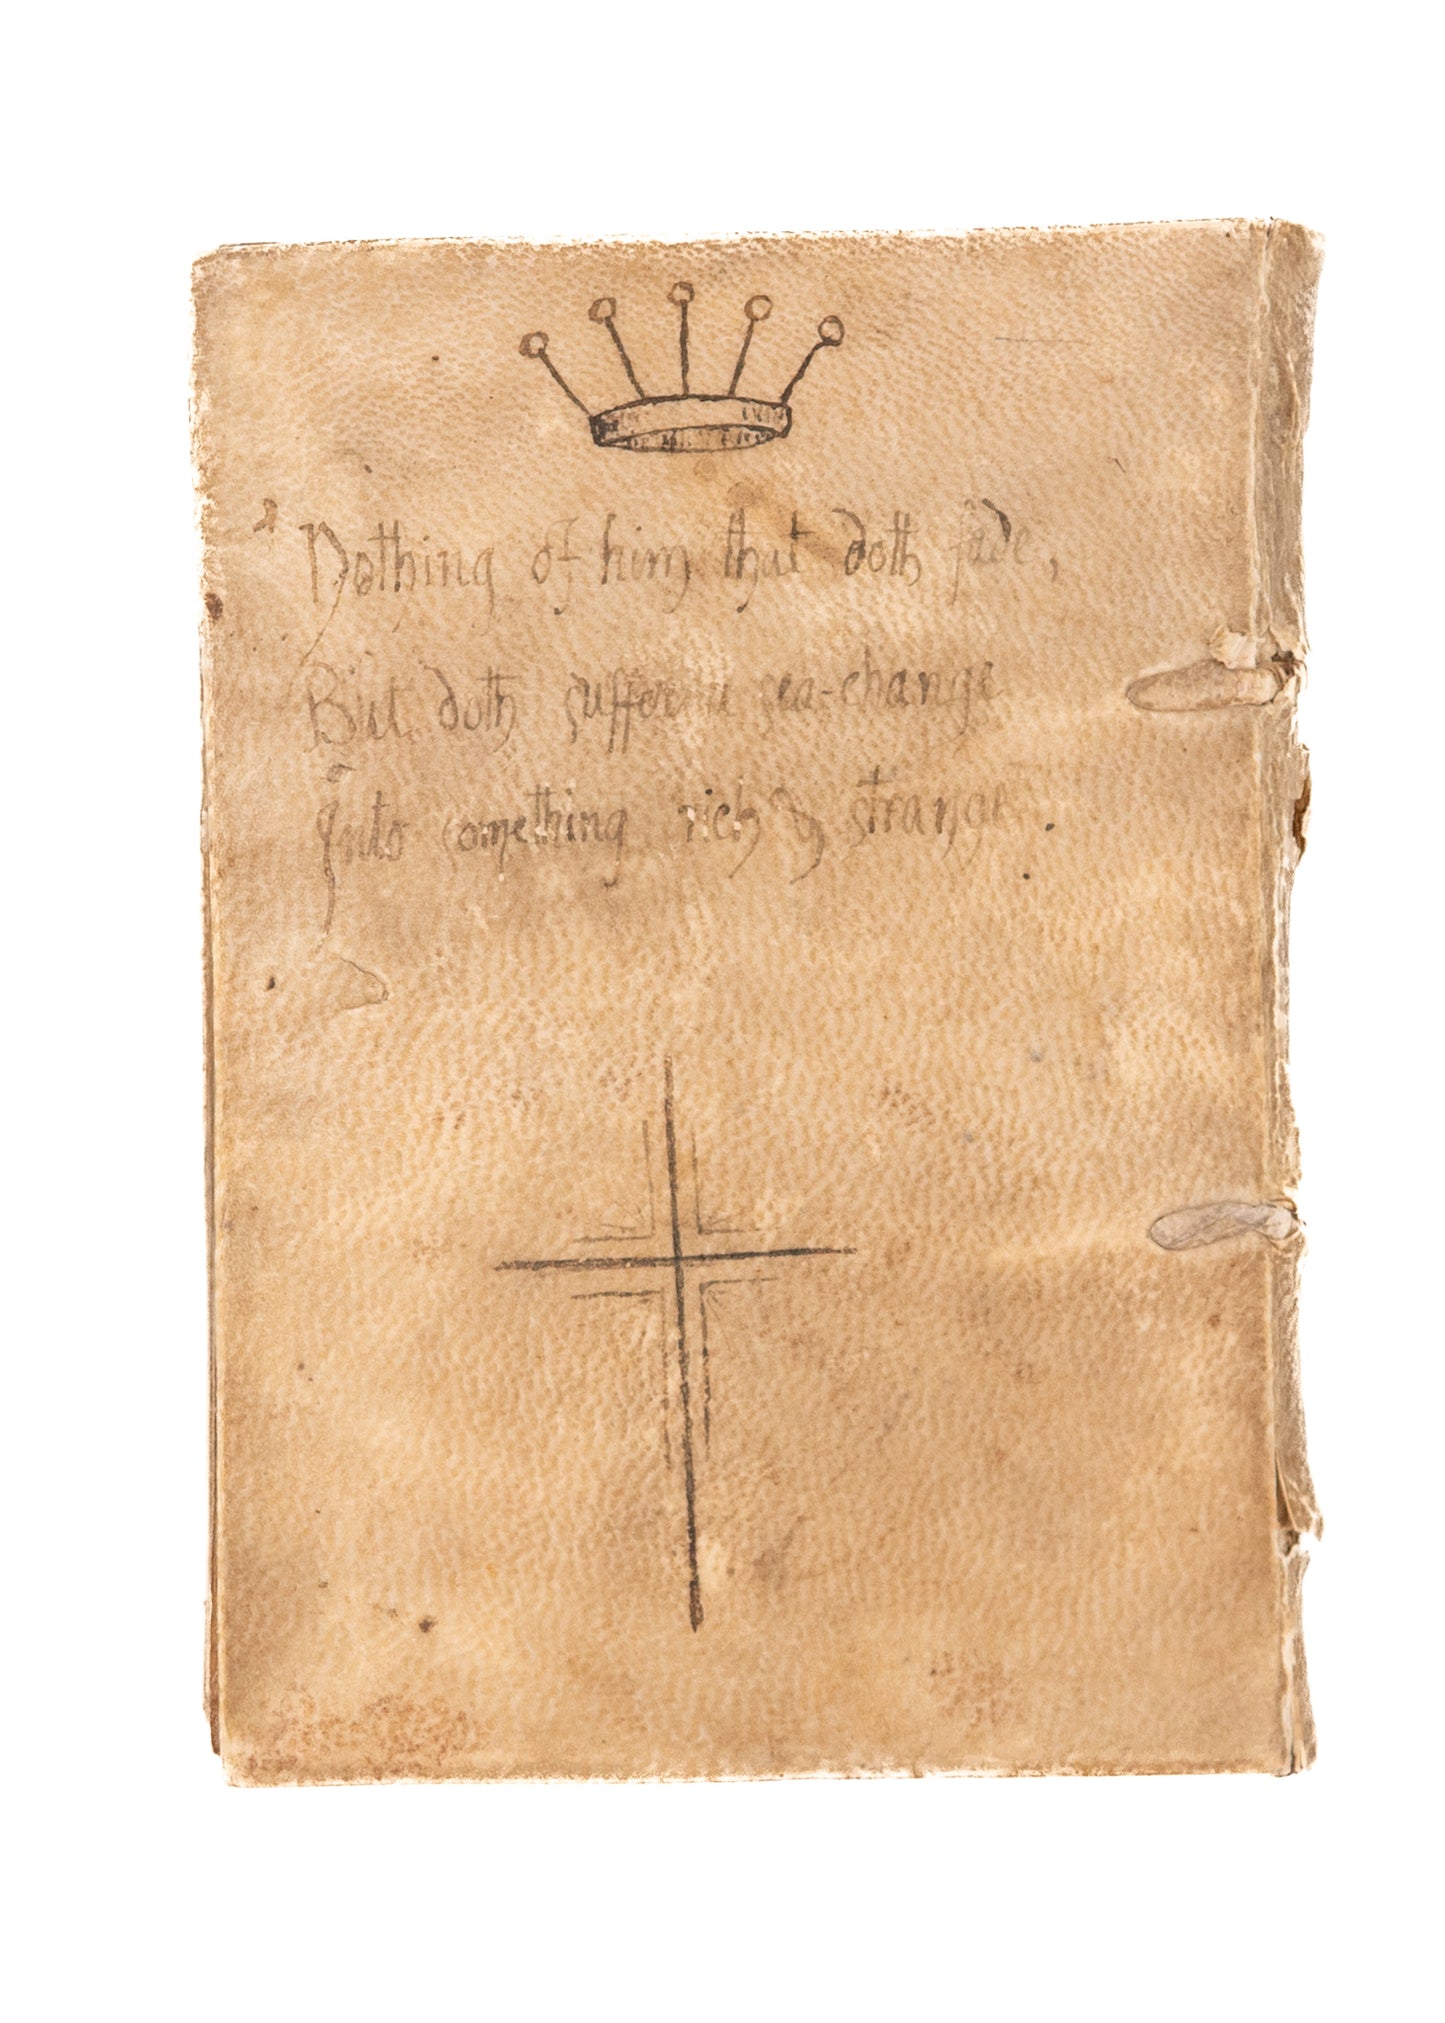 Nothing of him that doth fade,
But doth suffer a sea-change
Into something rich & strange.